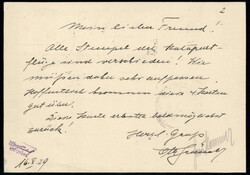 2
Mein lieber Freund!
Alle Stempel der Katapult-
flüge sind verschieden! Wir
müssen dabei sehr aufpassen.
Hoffentlich kommen die Karten
gut an.
Diese Karte erbitte baldmöglichst
zurück!
Herzl. Gruß
16.8.29